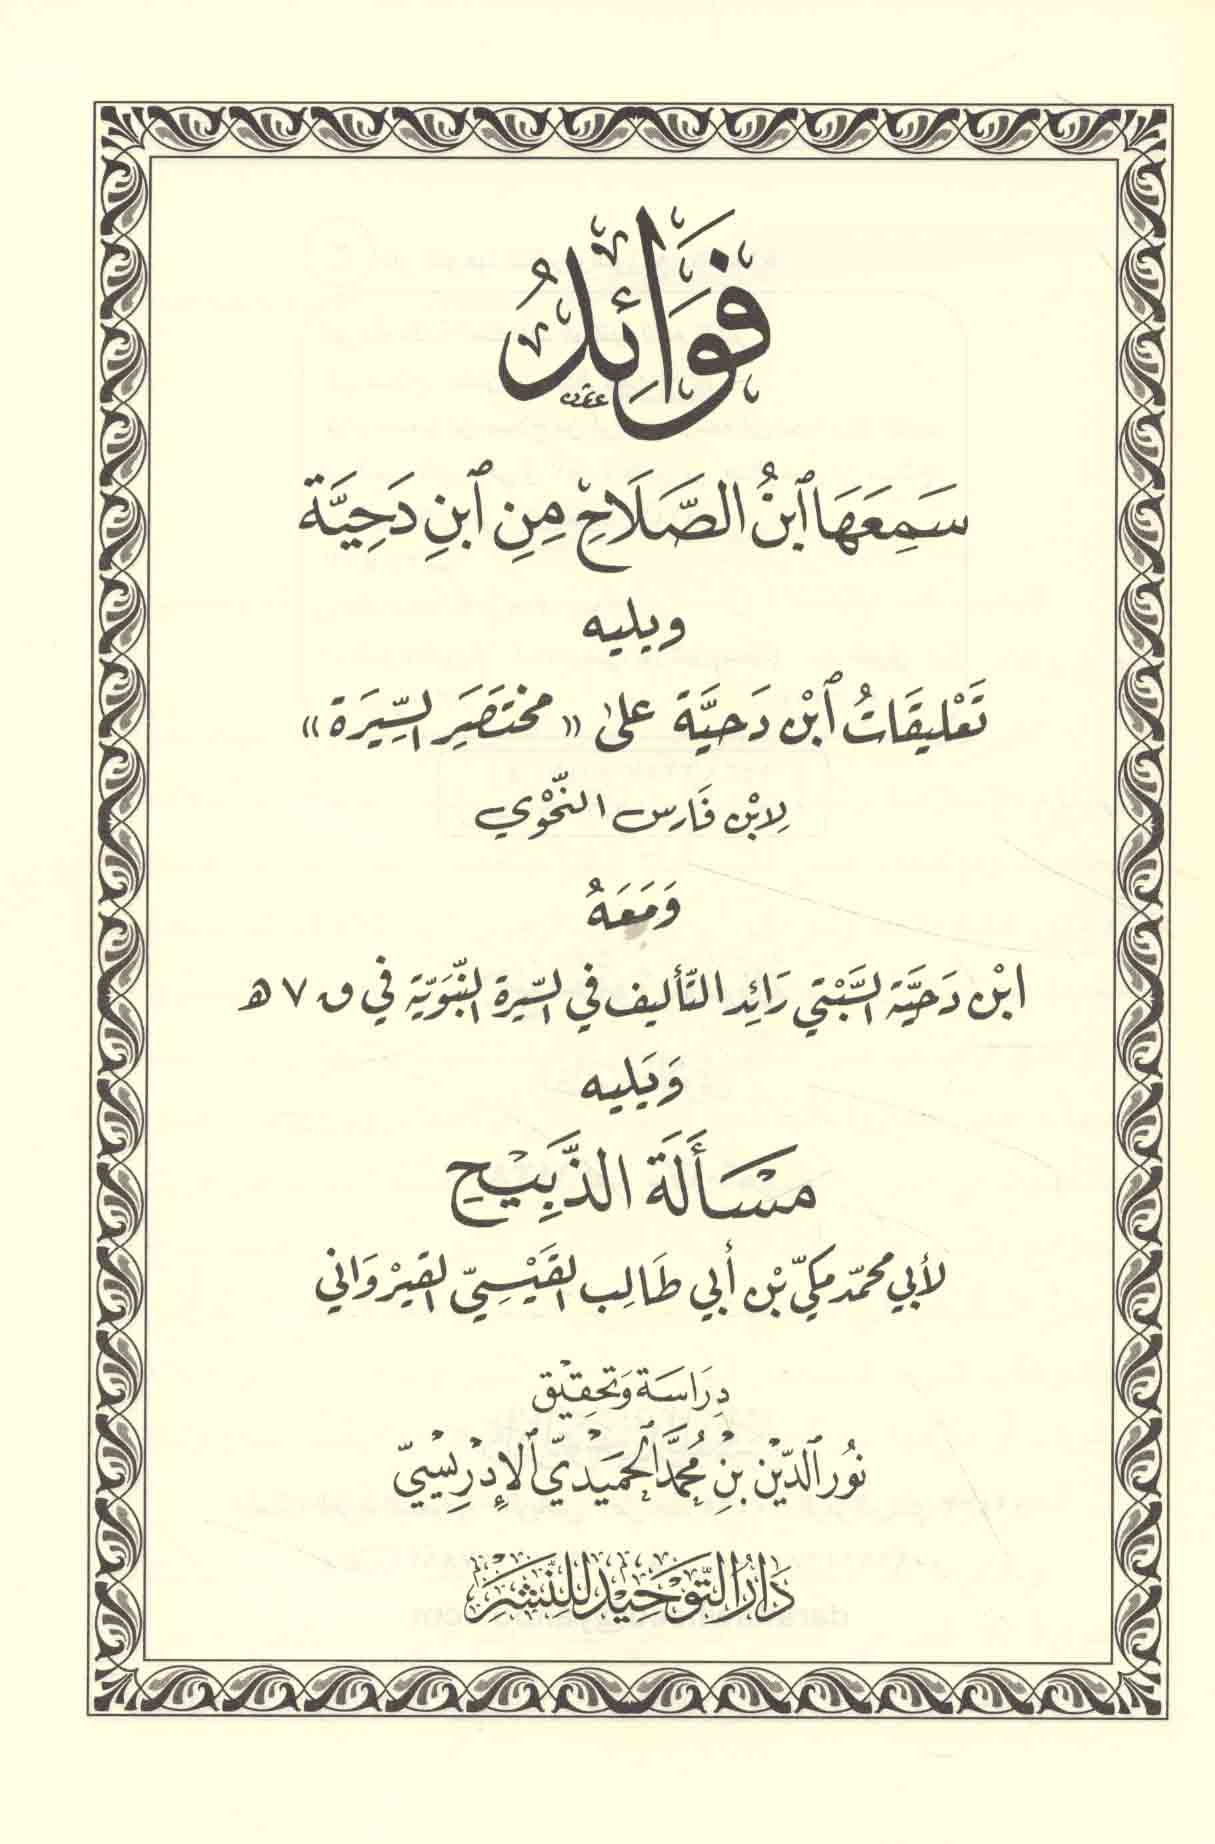 فَوَائِدُ
سَمِعَهَا ٱبْنُ الصَّلَاحِ مِنِ ٱبْنِ دَحِيَّة
ويليه
تَعْليقَاتُ ٱبْن دَحيَّة على «مختصَر السِّيرَة»
لِابْن فَارس النّحْوي
وَمَعَهُ
ابْن دَحيَّة السَّبْتي رَائِد التَّأليف في السِّيرَة النَّبَويَّة في ق ٧ هـ
وَيَليه
مَسْأَلَة الذَّبِيْحِ
لأبي محمّد مكيّ بْن أبي طَالِب القَيْسِيّ القيرْوَاني
دِرَاسَة وَتَحقِيْق
نُور ٱلدِّيْن بْنِ مُحَمَّد ٱلحَمِيْدِيّ ٱلإِدْرِيْسِيّ
دَارُ التَّوْحِيْدِ لِلنَّشْرِ